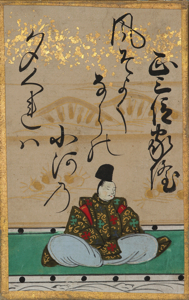 正三位家隆
風そよく
ならの
小河乃
夕くれハ